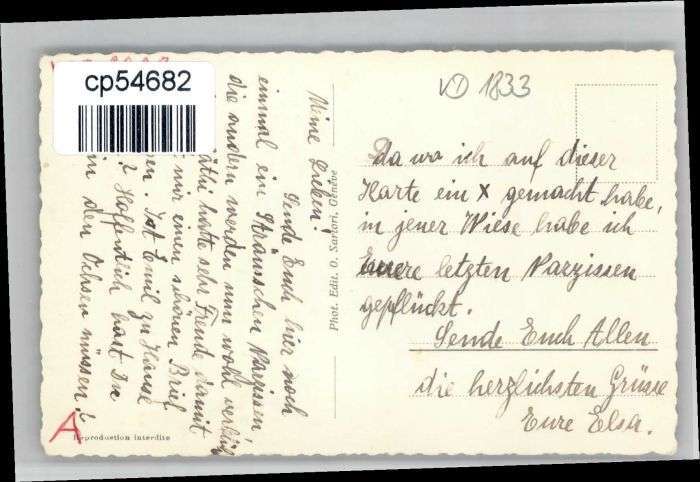 cp54682
VD 1833
Meine Lieben!
Sende Euch hier noch
einmal ein Sträusschen Narzissen
die andern werden nun wohl verblüht
hatte sehr Freude damit
mir einen schönen Brief
Ist Emil zu Hause
? Hoffentlich hast Du
in den Ochsen müssen?
Phot. Edit. O. Sartori, Genève
Da wo ich auf dieser
Karte ein X gemacht habe,
in jener Wiese habe ich
Euere letzten Narzissen
gepflückt.
Sende Euch Allen
die herzlichsten Grüsse
Eure Elsa.
A
Reproduction interdite